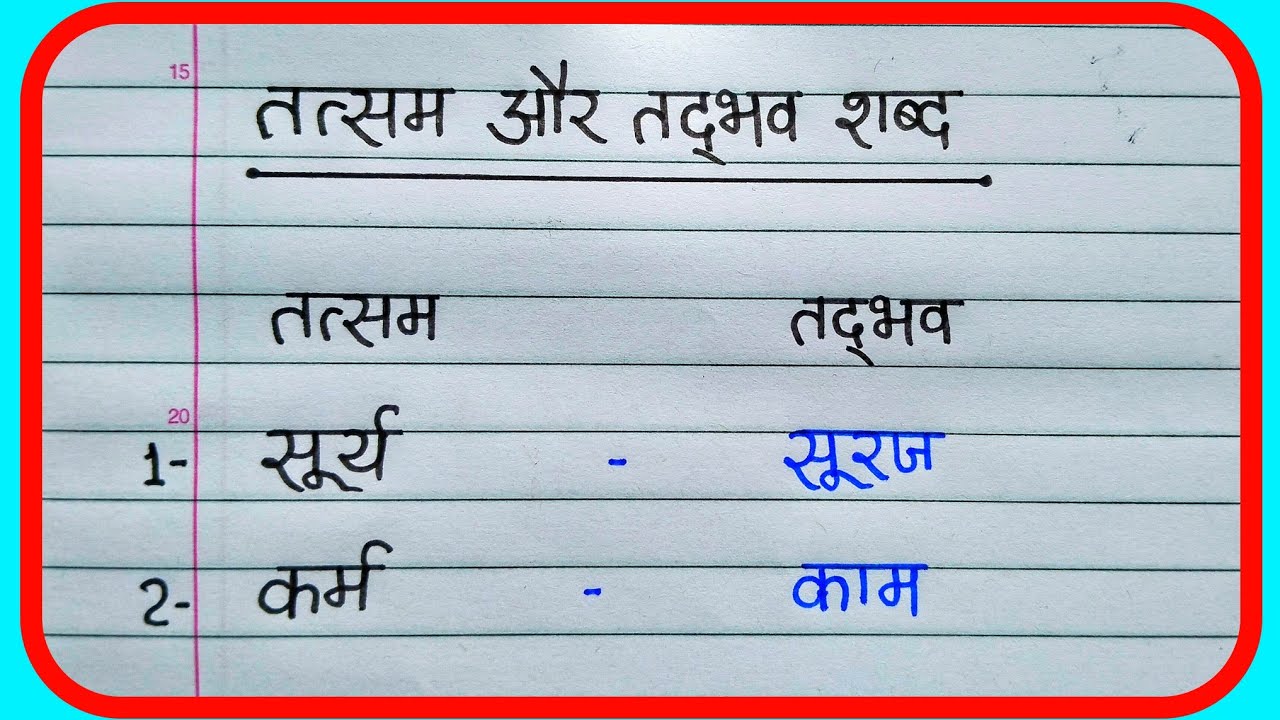 15
तत्सम और तद्भव शब्द
तत्सम तद्भव
20
1- सूर्य - सूरज
2- कर्म - काम